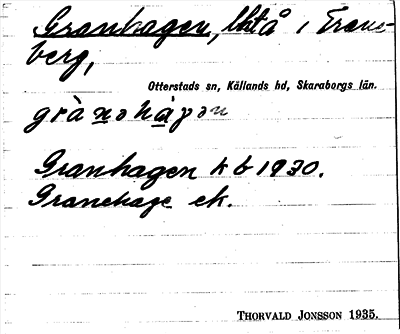 Granhagen, lht å i Trane-
berg,
Otterstads sn, Kållands hd, Skaraborgs län.
grànəhàgən
Granhagen k b 1930.
Granehage ek.
THORVALD JONSSON 1935.